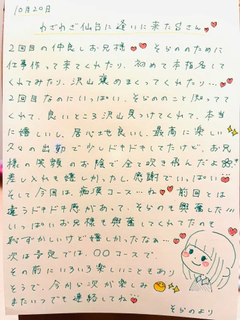 10月20日
わざわざ仙台に逢いに来た君さん
2回目の仲良しお兄様 そらののために
仕事作って来てくれたり、初めて本指名して
くれてみたり、沢山褒めまくってくれたり...
2回目なのにいっぱい、そらののこと知ってて
くれて、良いところ沢山見つけてくれて、本当
に嬉しいし、居心地も良いし、最高に楽しい
久々の出勤で少しドキドキしてたけど、お兄
様の笑顔のお陰で全て吹き飛んだよ
差し入れも嬉しかったし、感謝でいっぱい
そして今回は、痴漢コース...ね 前回とは
違うドキドキ感があって、そらのも興奮した
いっぱいお兄様も興奮してくれてたのも
恥ずかしいけど嬉しかったなぁ...
次は予定では、〇〇コースで、
その前にいろいろ楽しいこともあり
そうで、今から次が楽しみ
またいつでも連絡してね
そらのより